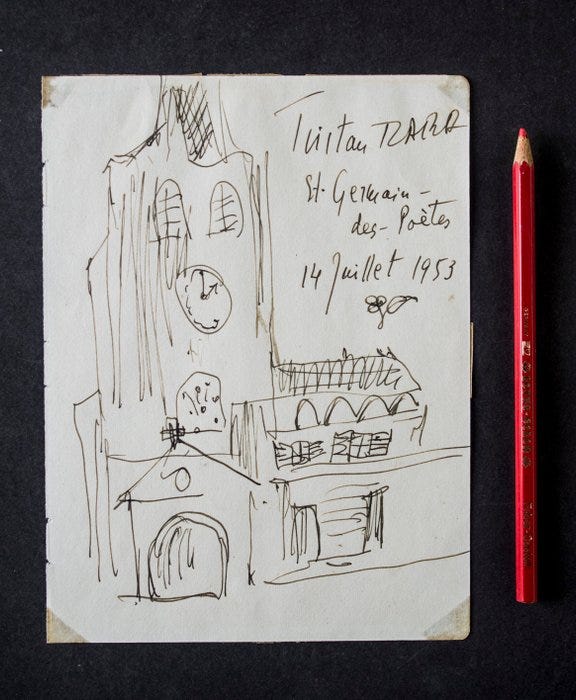 Tristan TZARA
St. Germain-
des-Poètes
14 Juillet 1953